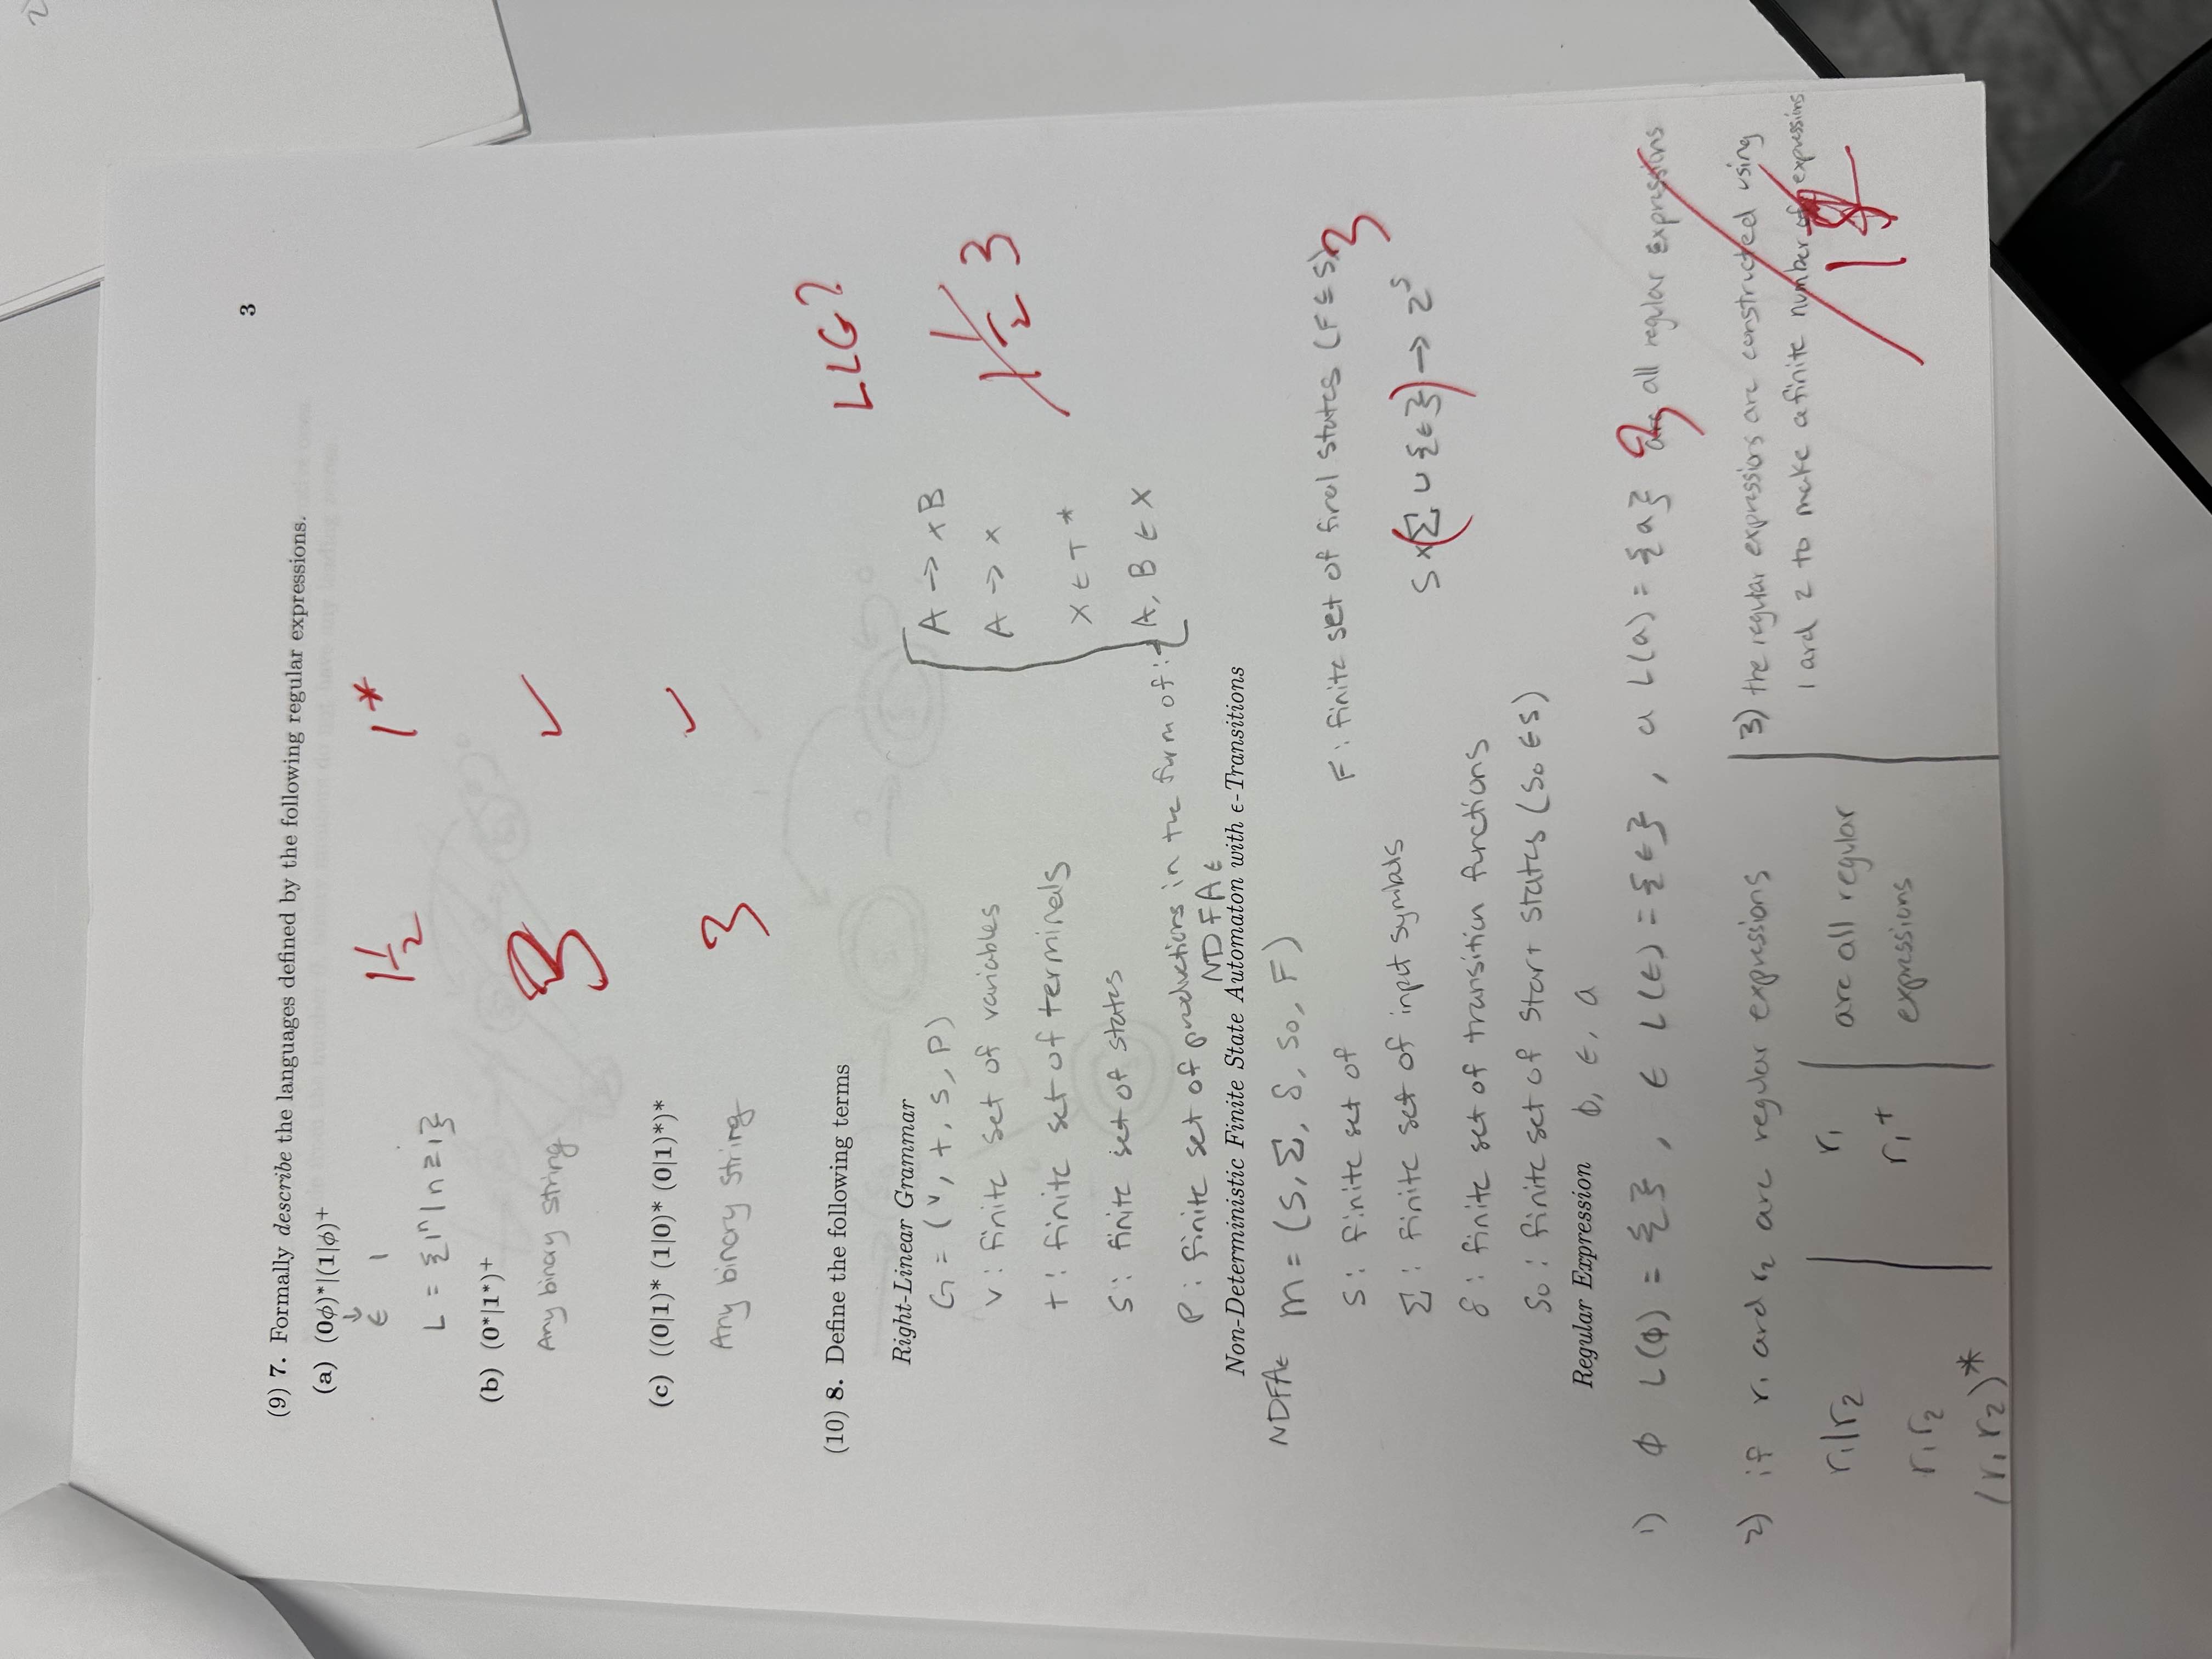 3
(9) 7. Formally describe the languages defined by the following regular expressions.
(a) (0ϕ)*|(1|ϕ)⁺
↓
ϵ 1
L = {1ⁿ | n ≥ 1}
1 1/2
1*
(b) (0*|1*)⁺
Any binary string
3 ✓
(c) ((0|1)* (1|0)* (0|1)*)*
Any binary string
3 ✓
(10) 8. Define the following terms
LLG?
Right-Linear Grammar
G = (v, t, s, P)
v : finite set of variables
t : finite set of terminals
S : finite set of states
P : finite set of productions in the form of :
A → xB
A → x
X ∈ T*
A, B ∈ X
1 1/2 3
NDFAϵ
Non-Deterministic Finite State Automaton with ϵ-Transitions
NDFAϵ m = (S, Σ, δ, So, F)
S : finite set of
Σ : finite set of input symbols
δ : finite set of transition functions
So : finite set of start states (So ∈ S)
F : finite set of final states (F ⊆ S)
3
S × (Σ ∪ {ϵ}) → 2ˢ
Regular Expression ϕ, ϵ, a
1) ϕ L(ϕ) = {}, ϵ L(ϵ) = {ϵ}, a L(a) = {a} are all regular expressions
2) if r₁ and r₂ are regular expressions
r₁|r₂
r₁r₂
(r₁r₂)*
r₁
r₁⁺
are all regular
expressions
3) the regular expressions are constructed using
1 and 2 to make a finite number of expressions